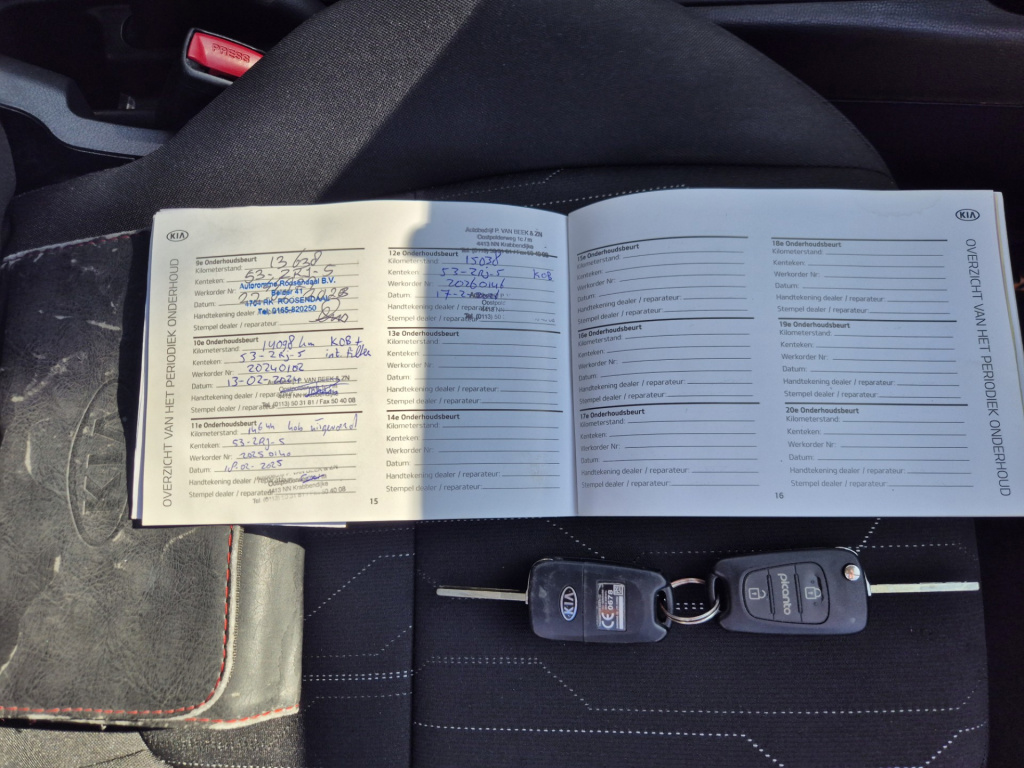 PRESS
KIA
OVERZICHT VAN HET PERIODIEK ONDERHOUD
9e Onderhoudsbeurt
Kilometerstand: 13638
Kenteken: 53-ZRJ-5
Werkorder Nr:
Datum:
Handtekening dealer / reparateur:
Stempel dealer / reparateur:
Autoronche Roosendaal B.V.
41
4704 RK ROOSENDAAL
Tel: 0165-820250
10e Onderhoudsbeurt
Kilometerstand: 14098 km KOB +
Kenteken: 53-ZRJ-5
Werkorder Nr: 20240102
Datum: 13-02-2024
Handtekening dealer / reparateur:
Stempel dealer / reparateur:
VAN BEEK & ZN
4413 NN
Tel. (0113) 50 31 81 / Fax 50 40 08
11e Onderhoudsbeurt
Kilometerstand:
Kenteken: 53-ZRJ-5
Werkorder Nr:
Datum: 02-2025
Handtekening dealer / reparateur:
Stempel dealer / reparateur:
4413 NN Krabbendijke
Tel
50 40 08
Autobedrijf P. VAN BEEK & ZN
Oostpolderweg
4413 NN Krabbendijke
12e Onderhoudsbeurt
Kilometerstand: 15038
Kenteken: 53-ZRJ-5 KOB
Werkorder Nr: 20260146
Datum: 17-2-
Handtekening dealer / reparateur:
Stempel dealer / reparateur:
Tel. (0113) 50
13e Onderhoudsbeurt
Kilometerstand:
Kenteken:
Werkorder Nr:
Datum:
Handtekening dealer / reparateur:
Stempel dealer / reparateur:
14e Onderhoudsbeurt
Kilometerstand:
Kenteken:
Werkorder Nr:
Datum:
Handtekening dealer / reparateur:
Stempel dealer / reparateur:
15
15e Onderhoudsbeurt
Kilometerstand:
Kenteken:
Werkorder Nr:
Datum:
Handtekening dealer / reparateur:
Stempel dealer / reparateur:
16e Onderhoudsbeurt
Kilometerstand:
Kenteken:
Werkorder Nr:
Datum:
Handtekening dealer / reparateur:
Stempel dealer / reparateur:
17e Onderhoudsbeurt
Kilometerstand:
Kenteken:
Werkorder Nr:
Datum:
Handtekening dealer / reparateur:
Stempel dealer / reparateur:
18e Onderhoudsbeurt
Kilometerstand:
Kenteken:
Werkorder Nr:
Datum:
Handtekening dealer / reparateur:
Stempel dealer / reparateur:
19e Onderhoudsbeurt
Kilometerstand:
Kenteken:
Werkorder Nr:
Datum:
Handtekening dealer / reparateur:
Stempel dealer / reparateur:
20e Onderhoudsbeurt
Kilometerstand:
Kenteken:
Werkorder Nr:
Datum:
Handtekening dealer / reparateur:
Stempel dealer / reparateur:
16
KIA
OVERZICHT VAN HET PERIODIEK ONDERHOUD
KIA
KIA
CE 0678
picanto